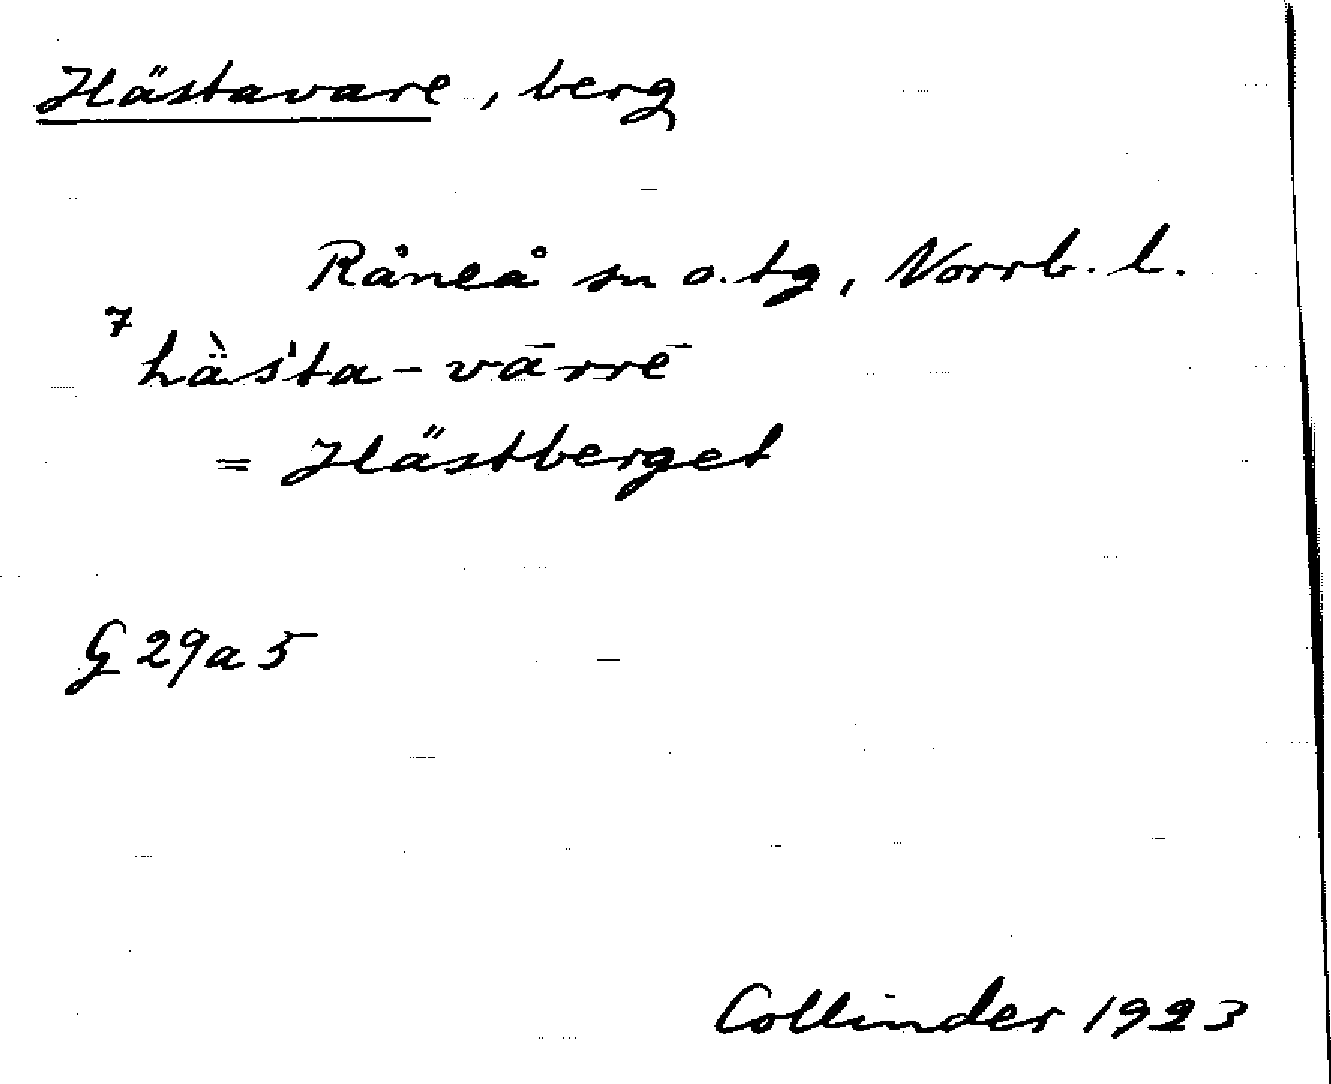 Hästavare, berg
Råneå sn o. tg, Norrb. l.
7
hä̀s'ta-vārrē
= Hästberget
G 29a5
Collinder 1923